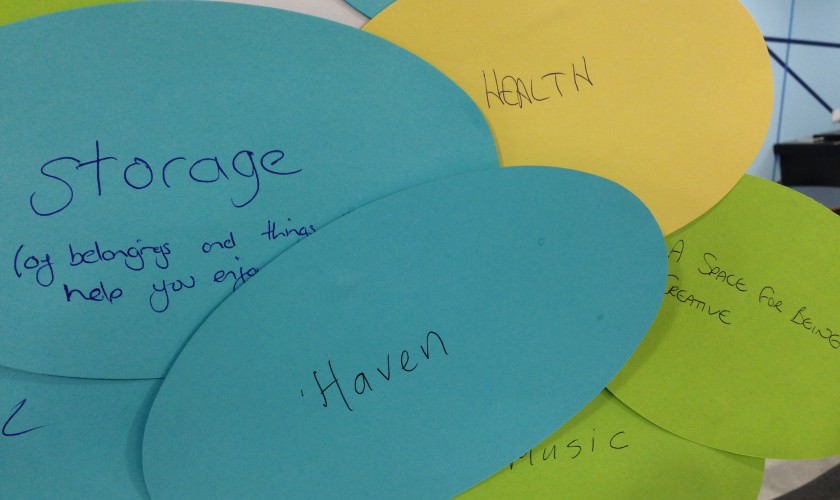 HEALTH
Storage
(of belongings and things
help you enjo
A SPACE FOR BEING
CREATIVE
'Haven
Music